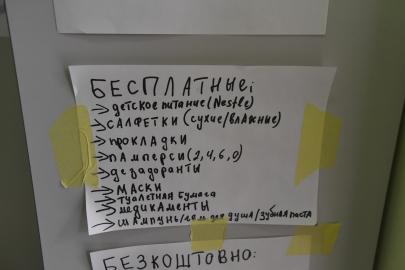 БЕСПЛАТНЫЕ:
→ детское питание (Nestle)
→ САЛФЕТКИ (сухие/влажние)
→ прокладки
→ памперси (2, 4, 6, 0)
→ дезадоранты
→ МАСКИ
туалетная бумага
→ медикаменты
→ шампунь/гель для душа/зубная паста
БЕЗКОШТОВНО: